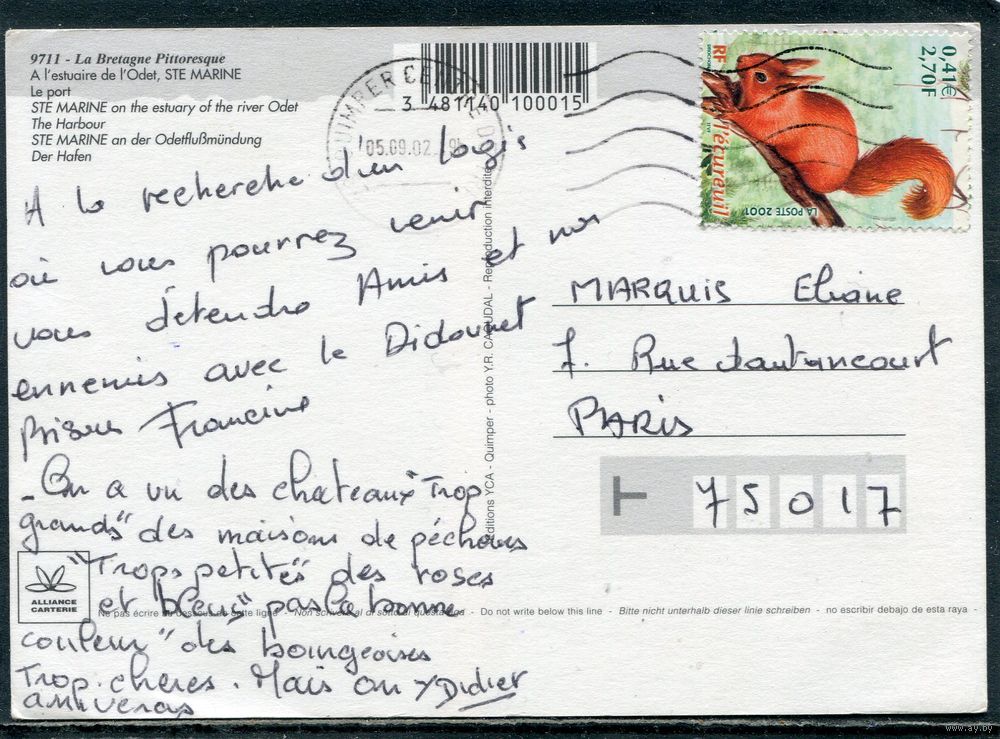 9711 - La Bretagne Pittoresque
A l'estuaire de l'Odet, STE MARINE
Le port
STE MARINE on the estuary of the river Odet
The Harbour
STE MARINE an der Odetflußmündung
Der Hafen
3 481140 100015
QUIMPER CENTRE
05.09.02
0,41€
2,70F
RF
l'écureuil
LA POSTE 2001
A la recherche d'un logis
où vous pourrez venir
vous détendre Amis et non
ennemis avec le
bisous Francine
- On a vu des chateaux "Trop
grands" des maisons de pécheurs
"Trops petites" des roses
et bleus "pas la bonne
couleur" des bourgeoises
Trop chères. Mais on y
arriveras
Didier
Editions YCA - Quimper - photo Y.R. CAOUDAL - Reproduction interdite
MARQUIS Eliane
7. Rue Dautancourt
PARIS
75017
ALLIANCE
CARTERIE
Ne pas écrire au dessous de cette ligne - Non scrivere al di sotto di questa riga - Do not write below this line - Bitte nicht unterhalb dieser linie schreiben - no escribir debajo de esta raya -
www.ay.by